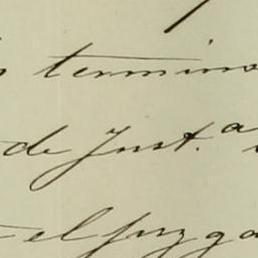 terminos
de Just.a
el Juzga